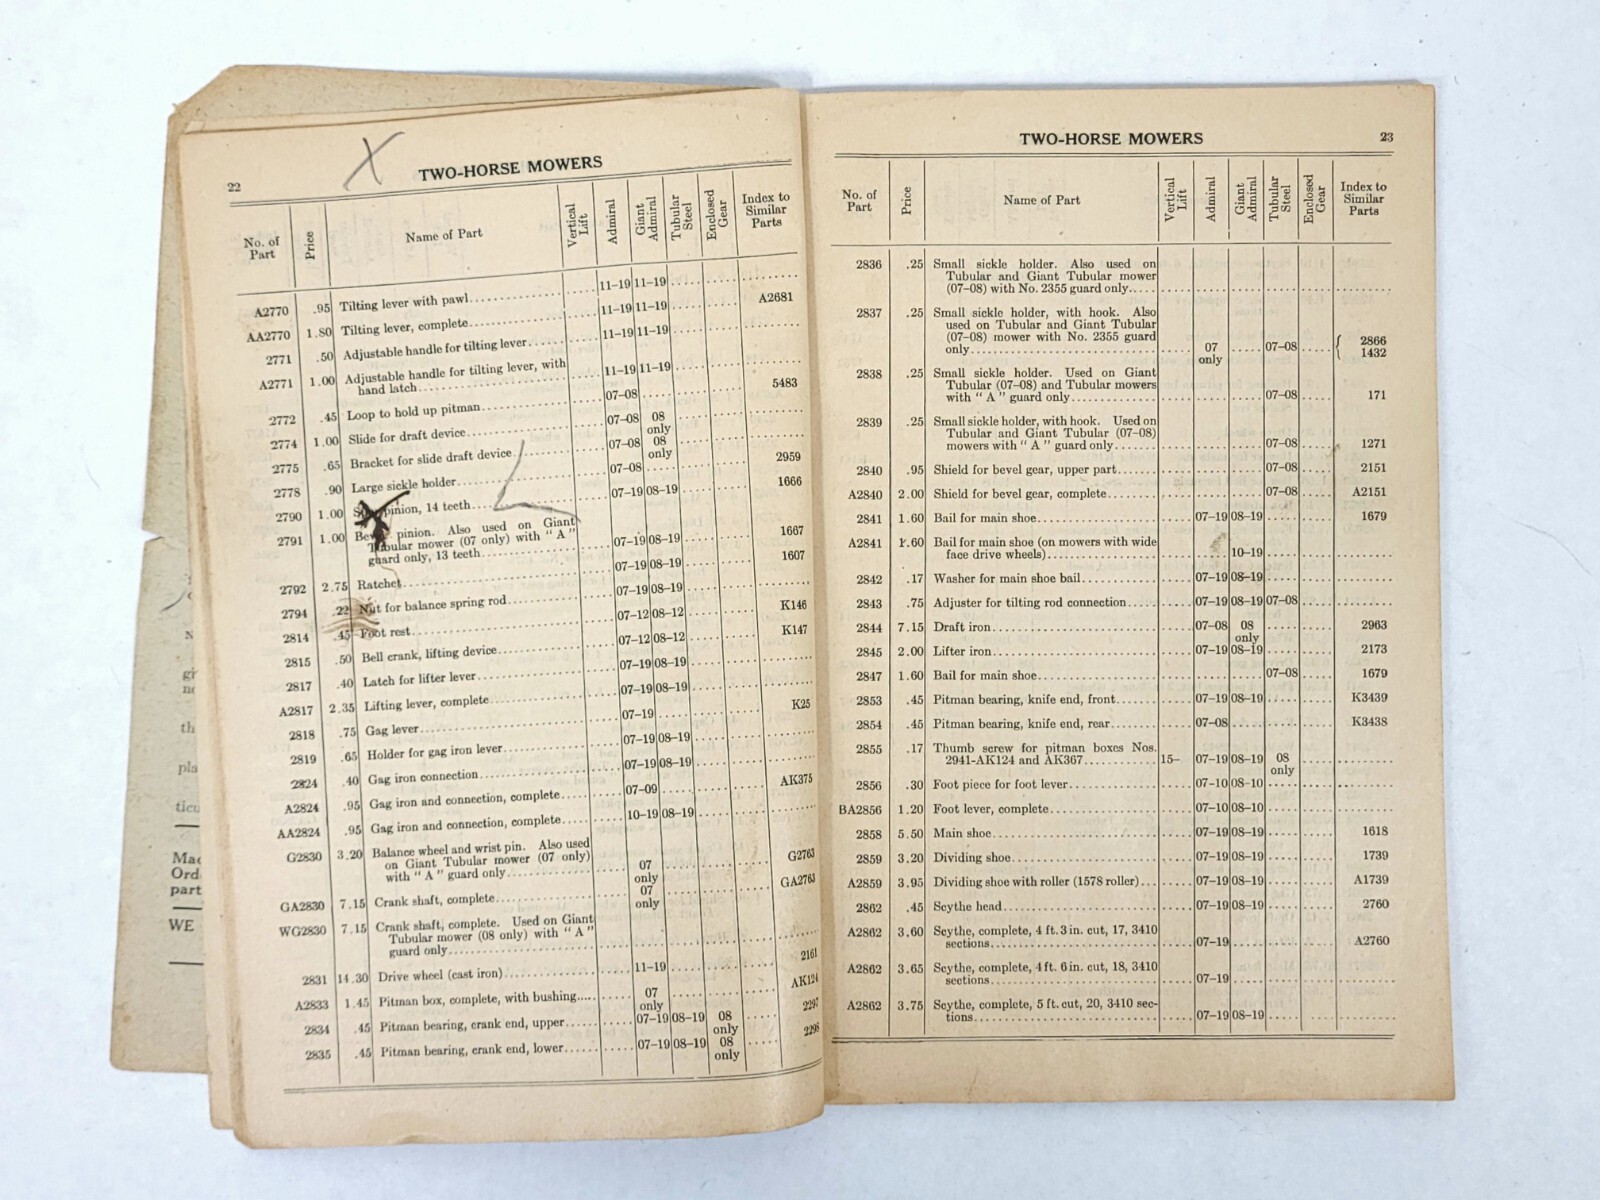 22
TWO-HORSE MOWERS
No. of Part | Price | Name of Part | Vertical Lift | Admiral | Giant Admiral | Tubular Steel | Enclosed Gear | Index to Similar Parts
A2770 .95 Tilting lever with pawl 11-19 11-19
AA2770 1.80 Tilting lever, complete 11-19 11-19 A2681
2771 .50 Adjustable handle for tilting lever 11-19 11-19
A2771 1.00 Adjustable handle for tilting lever, with
hand latch 11-19 11-19
2772 .45 Loop to hold up pitman 07-08 5483
2774 1.00 Slide for draft device 07-08 08 only
2775 .65 Bracket for slide draft device 07-08 08 only
2778 .90 Large sickle holder 07-08 2959
2790 1.00 pinion, 14 teeth 07-19 08-19 1666
2791 1.00 pinion. Also used on Giant
Tubular mower (07 only) with "A"
guard only, 13 teeth 07-19 08-19 1667
2792 2.75 Ratchet 07-19 08-19 1607
2794 .22 Nut for balance spring rod 07-19 08-19
2814 .45 Foot rest 07-12 08-12 K146
2815 .50 Bell crank, lifting device 07-12 08-12 K147
2817 .40 Latch for lifter lever 07-19 08-19
A2817 2.35 Lifting lever, complete 07-19 08-19
2818 .75 Gag lever 07-19 K25
2819 .65 Holder for gag iron lever 07-19 08-19
2824 .40 Gag iron connection 07-19 08-19
A2824 .95 Gag iron and connection, complete 07-09 AK375
AA2824 .95 Gag iron and connection, complete 10-19 08-19
G2830 3.20 Balance wheel and wrist pin. Also used
on Giant Tubular mower (07 only)
with "A" guard only 07 only G2763
GA2830 7.15 Crank shaft, complete 07 only GA2763
WG2830 7.15 Crank shaft, complete. Used on Giant
Tubular mower (08 only) with "A"
guard only
2831 14.30 Drive wheel (cast iron) 11-19 2161
A2833 1.45 Pitman box, complete, with bushing 07 only AK124
2834 .45 Pitman bearing, crank end, upper 07-19 08-19 08 only 2297
2835 .45 Pitman bearing, crank end, lower 07-19 08-19 08 only 2298
Mac
Ord
part
WE
TWO-HORSE MOWERS
23
No. of Part | Price | Name of Part | Vertical Lift | Admiral | Giant Admiral | Tubular Steel | Enclosed Gear | Index to Similar Parts
2836 .25 Small sickle holder. Also used on
Tubular and Giant Tubular mower
(07-08) with No. 2355 guard only
2837 .25 Small sickle holder, with hook. Also
used on Tubular and Giant Tubular
(07-08) mower with No. 2355 guard
only 07 only 07-08 { 2866 1432
2838 .25 Small sickle holder. Used on Giant
Tubular (07-08) and Tubular mowers
with "A" guard only 07-08 171
2839 .25 Small sickle holder, with hook. Used on
Tubular and Giant Tubular (07-08)
mowers with "A" guard only 07-08 1271
2840 .95 Shield for bevel gear, upper part 07-08 2151
A2840 2.00 Shield for bevel gear, complete 07-08 A2151
2841 1.60 Bail for main shoe 07-19 08-19 1679
A2841 1.60 Bail for main shoe (on mowers with wide
face drive wheels) 10-19
2842 .17 Washer for main shoe bail 07-19 08-19
2843 .75 Adjuster for tilting rod connection 07-19 08-19 07-08
2844 7.15 Draft iron 07-08 08 only 2963
2845 2.00 Lifter iron 07-19 08-19 2173
2847 1.60 Bail for main shoe 07-08 1679
2853 .45 Pitman bearing, knife end, front 07-19 08-19 K3439
2854 .45 Pitman bearing, knife end, rear 07-08 K3438
2855 .17 Thumb screw for pitman boxes Nos.
2941-AK124 and AK367 15- 07-19 08-19 08 only
2856 .30 Foot piece for foot lever 07-10 08-10
BA2856 1.20 Foot lever, complete 07-10 08-10
2858 5.50 Main shoe 07-19 08-19 1618
2859 3.20 Dividing shoe 07-19 08-19 1739
A2859 3.95 Dividing shoe with roller (1578 roller) 07-19 08-19 A1739
2862 .45 Scythe head 07-19 08-19 2760
A2862 3.60 Scythe, complete, 4 ft. 3 in. cut, 17, 3410
sections 07-19 A2760
A2862 3.65 Scythe, complete, 4 ft. 6 in. cut, 18, 3410
sections 07-19
A2862 3.75 Scythe, complete, 5 ft. cut, 20, 3410 sec-
tions 07-19 08-19